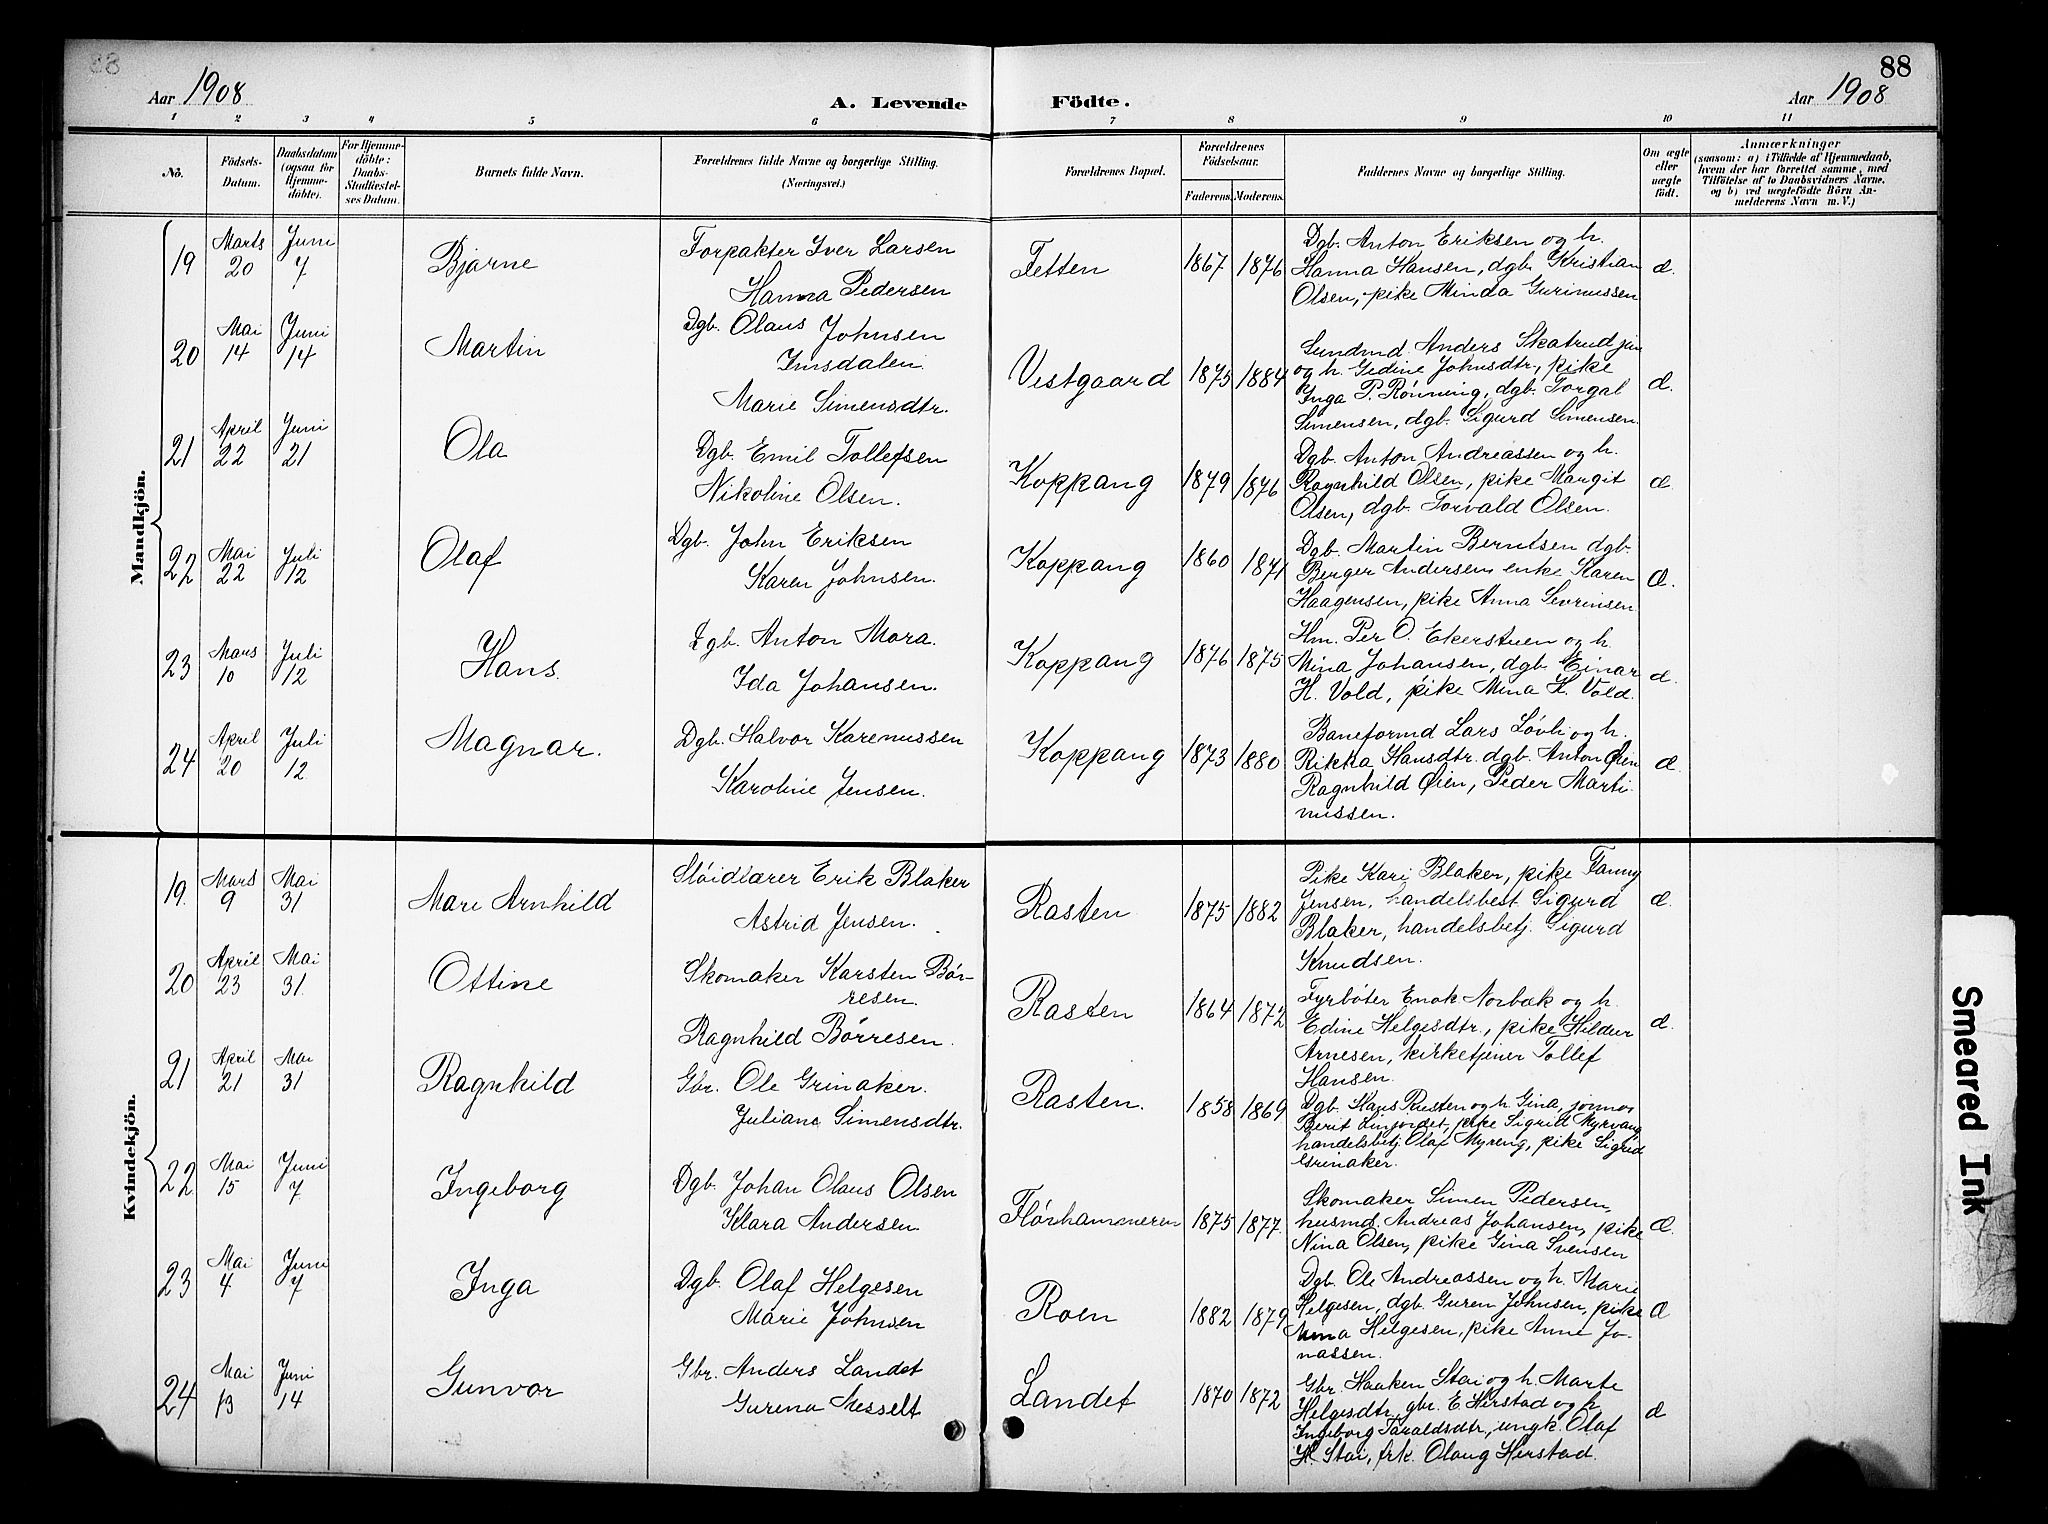 88
88
Aar 1908
A. Levende Födte.
Aar 1908
1 2 3 4 5 6 7 8 9 10 11
No.
Födsels-
Datum.
Daabsdatum
(ogsaa for
Hjemme-
döbte).
For Hjemme-
döbte:
Daabs-
Stadfæstel-
ses Datum.
Barnets fulde Navn.
Forældrenes fulde Navne og borgerlige Stilling.
(Næringsvei.)
Forældrenes Bopæl.
Forældrenes
Födselsaar.
Faderens. Moderens.
Faddernes Navne og borgerlige Stilling.
Om ægte
eller
uægte
födt.
Anmærkninger
(saasom: a) i Tilfælde af Hjemmedaab,
hvem der har forrettet samme, med
Tilföielse af to Daabsvidners Navne,
og b) ved uægtefödte Börn An-
melderens Navn m. V.)
Mandkjön.
19 Marts 20 Juni 7 Bjarne
Forpakter Iver Larsen
Hanna Pedersen
Tetten 1867 1876
Dgb. Anton Eriksen og h.
Hanna Hansen, dgb. Kristian
Olsen, pike Minda Gurinussen
æ.
20 Mai 14 Juni 14 Martin
Dgb. Olaus Johnsen
Imsdalen.
Marie Simensdtr.
Vestgaard 1875 1884
Anders Skatrud jun
og h. Gedine Johnsdtr, pike
Inga P. Rønning, dgb. Torgal
Simensen, dgb. Sigurd Simensen.
æ.
21 April 22 Juni 21 Ola
Dgb. Emil Tollefsen
Nikoline Olsen.
Koppang 1879 1876
Dgb. Anton Andreassen og h.
Ragnhild Olsen, pike Margit
Olsen, dgb. Torvald Olsen.
æ.
22 Mai 22 Juli 12 Olaf
Dgb. John Eriksen
Karen Johnsen.
Koppang 1860 1871
Dgb. Martin Berntsen dgb.
Berger Andersen, enke Karen
Haagensen, pike Anna Sevrinsen.
æ.
23 Mars 10 Juli 12 Hans.
Dgb. Anton Mora.
Ida Johansen.
Koppang 1876 1875
Hm. Per O. Ekerstuen og h.
Mina Johansen, dgb. Einar
H. Vold, pike Mina H. Vold.
æ.
24 April 20 Juli 12 Magnar.
Dgb. Halvor Karenussen
Karoline Jensen.
Koppang 1873 1880
Baneformd Lars Løvli og h.
Rikka Hansdtr. dgb. Anton Øien
Ragnhild Øien, Peder Marti-
nussen.
æ.
Kvindekjön.
19. Mars 9 Mai 31 Mari Arnhild
Sløidlærer Erik Blaker
Astrid Jensen.
Rasten 1875 1882
Pike Kari Blaker, pike Fanny
Jensen, handelsbest. Sigurd
Blaker, handelsbetj. Sigurd
Knudsen.
æ.
20 April 23 Mai 31. Ottine
Skomaker Karsten Bør-
resen.
Ragnhild Børresen.
Rasten 1864 1872
Fyrbøter Enok Norbak og h.
Edine Helgesdtr., pike Hildur
Arnesen, kirketjener Tollef
Hansen.
æ.
21 April 21 Mai 31 Ragnhild
Gbr. Ole Grinaker.
Juliane Simensdtr.
Rasten. 1858 1869
Dgb. Hans Rusten og h. Gina, jormor
Berit Linjordet, pike Sigrid Myrvang
handelsbetj. Olaf Myreng, pike Sigrid
Grinaker.
22 Mai 15 Juni 7 Ingeborg
Dgb. Johan Olaus Olsen
Klara Andersen.
Flørhammeren 1875 1877.
Skomaker Simen Pedersen,
husmd. Andreas Johansen, pike
Nina Olsen, pike Gina Svensen
æ.
23 Mai 4 Juni 7 Inga
Dgb. Olaf Helgesen
Marie Johnsen
Roen 1882 1879
Dgb. Ole Andreassen og h. Marie
Helgesen, dgb. Guren Johnsen, pike
Nina Helgesen, pike Anne Jo-
nassen.
æ
24 Mai 13 Juni 14 Gunvor
Gbr. Anders Landet
Gurena Messelt
Landet 1870 1872
Gbr. Haaken Stai og h. Marte
Helgesdtr, gbr. E. Herstad og h
Ingeborg Taraldsdtr, ungk. Olaf
H. Stai, frk. Olaug Herstad.
æ
Smeared Ink